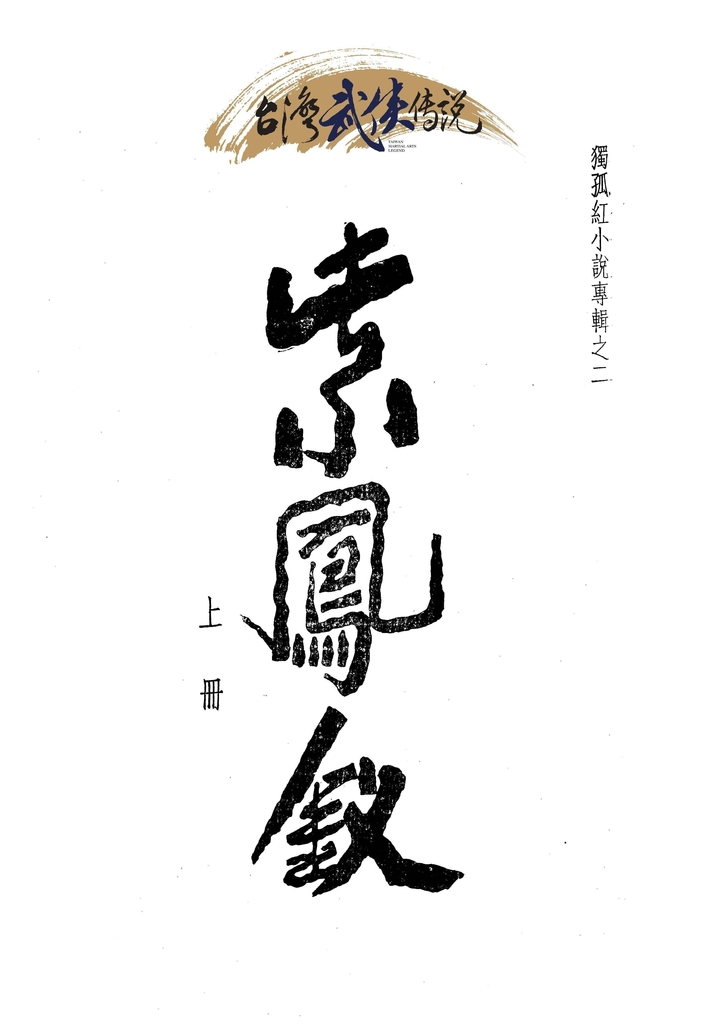 台灣武俠传説
TAIWAN
MARTIAL ARTS
LEGEND
獨孤紅小說專輯之二
紫鳳釵
上冊